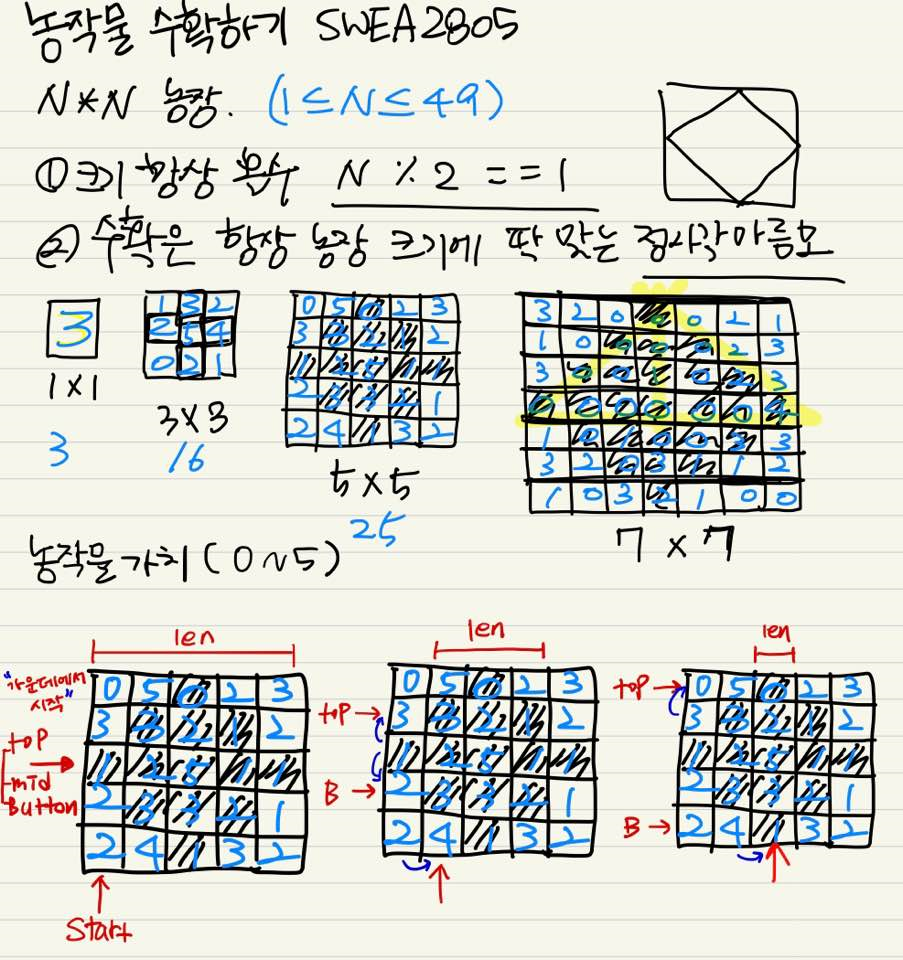 농작물 수확하기 SWEA2805
N*N 농장. (1≤N≤49)
① 크기 항상 홀수 N % 2 == 1
② 수확은 항장 농장 크기에 딱 맞는 정사각마름모
3
1x1
3
1 3 2
2 5 4
0 2 1
3x3
16
0 5 0 2 3
3 3 2 1 2
1 2 5 1 1
2 3 3 2 1
2 4 1 3 2
5x5
25
3 2 0 0 0 2 1
1 0 0 0 0 2 3
3 0 0 1 0 2 3
0 0 0 0 0 0 4
1 0 1 0 0 3 3
3 2 0 3 1 1 2
1 0 3 2 1 0 0
7x7
농작물 가치 (0~5)
len
"가운데에서
시작"
top
mid
Button
0 5 0 2 3
3 3 2 1 2
1 2 5 1 1
2 3 3 2 1
2 4 1 3 2
Start
len
top
B
0 5 0 2 3
3 3 2 1 2
1 2 5 1 1
2 3 3 2 1
2 4 1 3 2
len
top
B
0 5 0 2 3
3 3 2 1 2
1 2 5 1 1
2 3 3 2 1
2 4 1 3 2